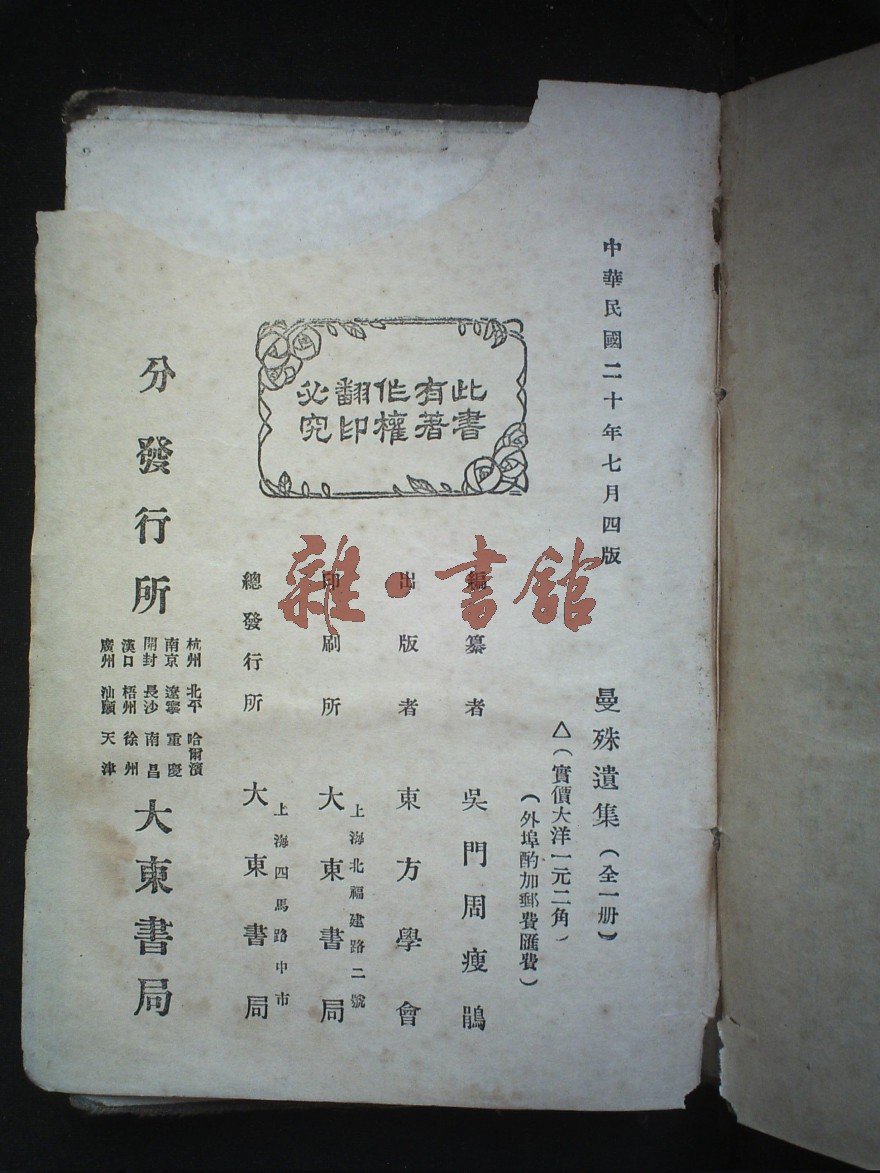 中華民國二十年七月四版
曼殊遺集（全一册）
△（實價大洋一元二角）
（外埠酌加郵費匯費）
編纂者 吳門周瘦鵑
出版者 東方學會
印刷所 上海北福建路二號
大東書局
總發行所 上海四馬路中市
大東書局
分發行所
杭州 北平 哈爾濱
南京 遼寧 重慶
開封 長沙 南昌
漢口 梧州 徐州
廣州 汕頭 天津
大東書局
此書
有著
作權
翻印
必究
雜·書館